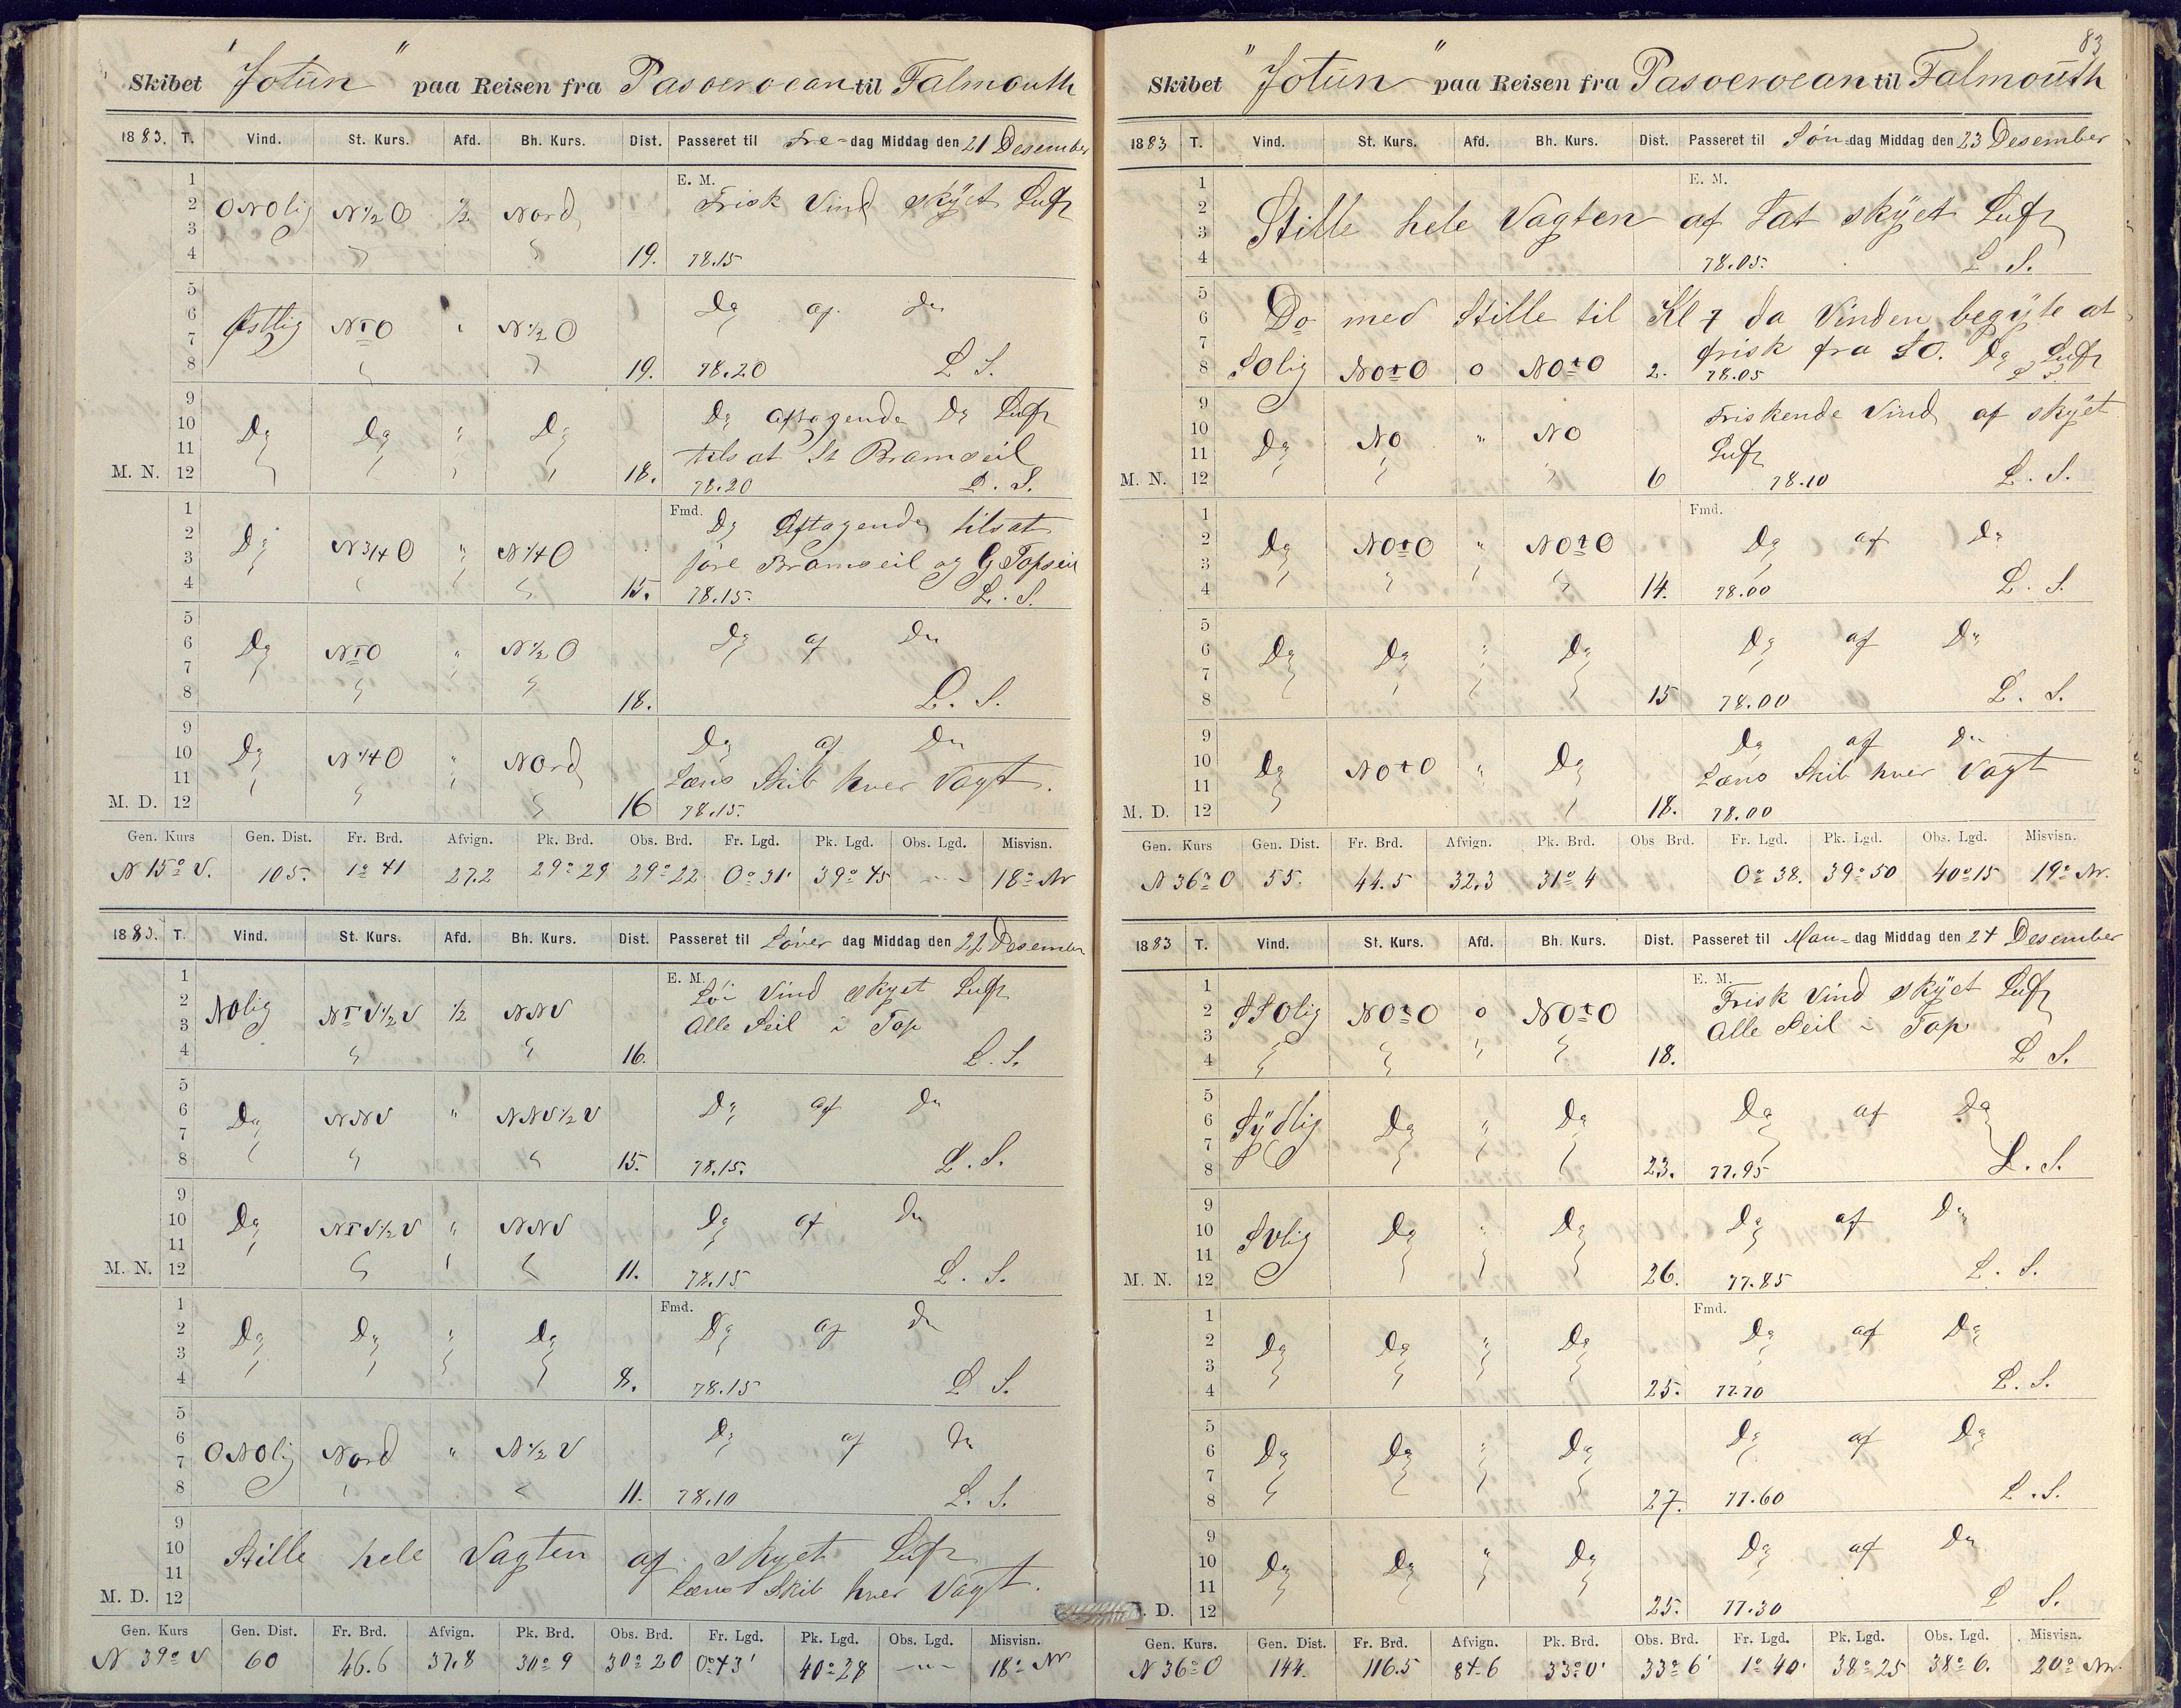 Skibet "Jotun" paa Reisen fra Pasoeroean til Falmouth
1883. T. Vind. St. Kurs. Afd. Bh. Kurs. Dist. Passeret til Fre-dag Middag den 21 Desember
1
2 ONOlig N½O ½ Nord E. M. Frisk Vind skÿet Luft
3
4 " " 19. 78.15
5
6 Østlig NtO " N½O Do af Do
7
8 " " 19. 78.20 L S.
9
10 Do Do " Do Do Aftagende Do Luft
11 tilsat St Bramseil
M. N. 12 " " " " 18. 78.20 L. S.
1
2 Do N3/4O " N1/4O Fmd. Do Aftagende tilsat
3 fore Bramseil og G Topseil
4 " " " " 15. 78.15. L. S.
5
6 Do NtO " N½O Do af Do
7
8 " " 18. L. S.
9
10 Do N1/4O " Nord Do af Do
11 Læns Skib hver Vagt.
M. D. 12 " " 16 78.15.
Gen. Kurs Gen. Dist. Fr. Brd. Afvign. Pk. Brd. Obs. Brd. Fr. Lgd. Pk. Lgd. Obs. Lgd. Misvisn.
N 15° V. 105. 1° 41 27.2 29° 29 29° 22 0° 31' 39° 45 -"- 18° Nv
1883. T. Vind. St. Kurs. Afd. Bh. Kurs. Dist. Passeret til Løver dag Middag den 22 Desember
1
2 NOlig NtV½V ½ NNV E. M. Lör Vind skyet Luft
3 Alle Seil i Top
4 " " 16. L. S.
5
6 Do NNV " NNV½V Do af Do
7
8 " " " 15. 78.15. L. S.
9
10 Do NtV½V " NNV Do af Do
11
M. N. 12 " " " 11. 78.15 L. S.
1
2 Do Do " Do Fmd. Do af Do
3
4 " " " " 8. 78.15 L S.
5
6 ONOlig Nord " N½V Do af Do
7
8 " " 11. 78.10 L. S.
9
10 Stille hele Vagten af skyet Luft
11 Læns Skib hver Vagt.
M. D. 12
Gen. Kurs Gen. Dist. Fr. Brd. Afvign. Pk. Brd. Obs. Brd. Fr. Lgd. Pk. Lgd. Obs. Lgd. Misvisn.
N 39° V 60 46.6 37.8 30° 9 30° 20 0° 43' 40° 28 -"- 18° Nv
83
Skibet "Jotun" paa Reisen fra Pasoeroean til Falmouth
1883 T. Vind. St. Kurs. Afd. Bh. Kurs. Dist. Passeret til Søn-dag Middag den 23 Desember
1 E. M.
2 Stille hele Vagten af Lat skÿet Luft
3
4 78.05. L. S.
5
6 Do med Stille til Kl 7 da Vinden begÿte at
7 frisk fra SO. Do Luft
8 SOlig NOtO 0 NOtO 2. 78.05 L S.
9 Friskende Vind af skÿet
10 Do NO " NO Luft
11
M. N. 12 " " 6 78.10 L. S.
1 Fmd.
2 Do NOtO " NOtO Do af Do
3
4 " " " " 14. 78.00 L. S.
5
6 Do Do " Do Do af Do
7
8 " " " " 15 78.00 L. S.
9 Do af Do
10 Do NOtO " Do Læns Skib hver Vagt
11
M. D. 12 " " 18. 78.00
Gen. Kurs Gen. Dist. Fr. Brd. Afvign. Pk. Brd. Obs Brd. Fr. Lgd. Pk. Lgd. Obs. Lgd. Misvisn.
N 36° O 55. 44.5 32.3 31° 4 0° 38. 39° 50 40° 15 19° Nv.
1883 T. Vind. St. Kurs. Afd. Bh. Kurs. Dist. Passeret til Man-dag Middag den 24 Desember
1 E. M. Frisk Vind skÿet Luft
2 SSOlig NOtO 0 NOtO Alle Seil i Top
3
4 " " " " 18. L S.
5
6 Sÿdlig Do " Do Do af Do
7
8 " " " 23. 77.95 L. S.
9
10 SVlig Do " Do Do af Do
11
M. N. 12 " " " 26. 77.85 L. S.
1 Fmd.
2 Do Do " Do Do af Do
3
4 " " " " 25. 77.70 L. S.
5
6 Do Do " Do Do af Do
7
8 " " " " 27. 77.60 L. S.
9
10 Do Do " Do Do af Do
11
D. 12 " " " " 25. 77.30 L S.
Gen. Kurs. Gen. Dist. Fr. Brd. Afvign. Pk. Brd. Obs. Brd. Fr. Lgd. Pk. Lgd. Obs. Lgd. Misvisn.
N 36° O 144. 116.5 84.6 33° 0' 33° 6' 1° 40' 38° 25 38° 6. 20° Nv.